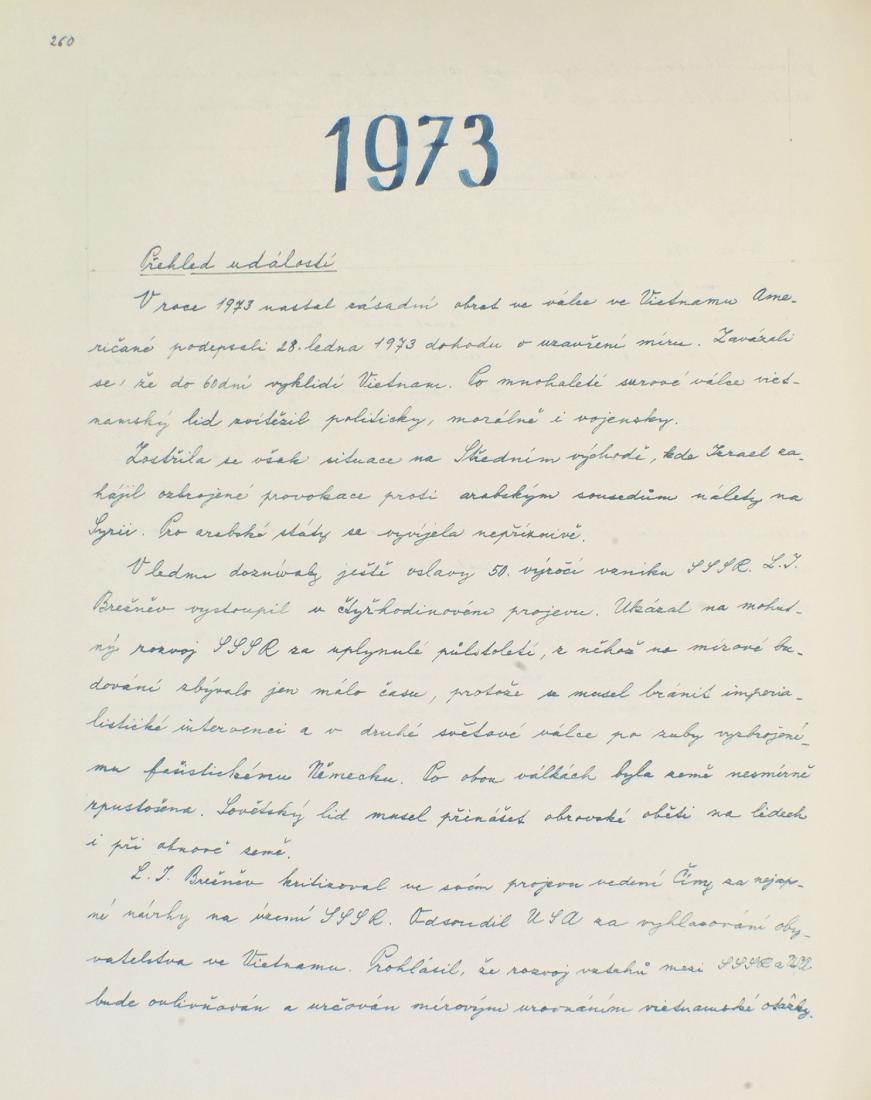 260
1973
Přehled událostí
V roce 1973 nastal zásadní obrat ve válce ve Vietnamu Ame-
ričané podepsali 28. ledna 1973 dohodu o uzavření míru. Zavázali
se, že do 60 dní vyklidí Vietnam. Po mnohaleté surové válce viet-
namský lid zvítězil politicky, morálně i vojensky.
Zostřila se však situace na Středním východě, kde Izrael za-
hájil ozbrojené provokace proti arabským sousedům nálety na
Syrii. Pro arabské státy se vyvíjela nepříznivě.
V lednu doznívaly ještě oslavy 50. výročí vzniku SSSR. L. I.
Brežněv vystoupil v čtyřhodinovém projevu. Ukázal na mohut-
ný rozvoj SSSR za uplynulé půlstoletí, z něhož na mírové bu-
dování zbývalo jen málo času, protože se musel bránit imperia-
listické intervenci a v druhé světové válce po zuby vyzbrojené-
mu fašistickému Německu. Po obou válkách byla země nesmírně
zpustošena. Sovětský lid musel přinášet obrovské oběti na lidech
i při obnově země.
L. I. Brežněv kritizoval ve svém projevu vedení Číny za nejap-
né návrhy na území SSSR. Odsoudil USA za vyhlazování oby-
vatelstva ve Vietnamu. Prohlásil, že rozvoj vztahů mezi SSSR a USA
bude ovlivňován a určován mírovým urovnáním vietnamské otázky.